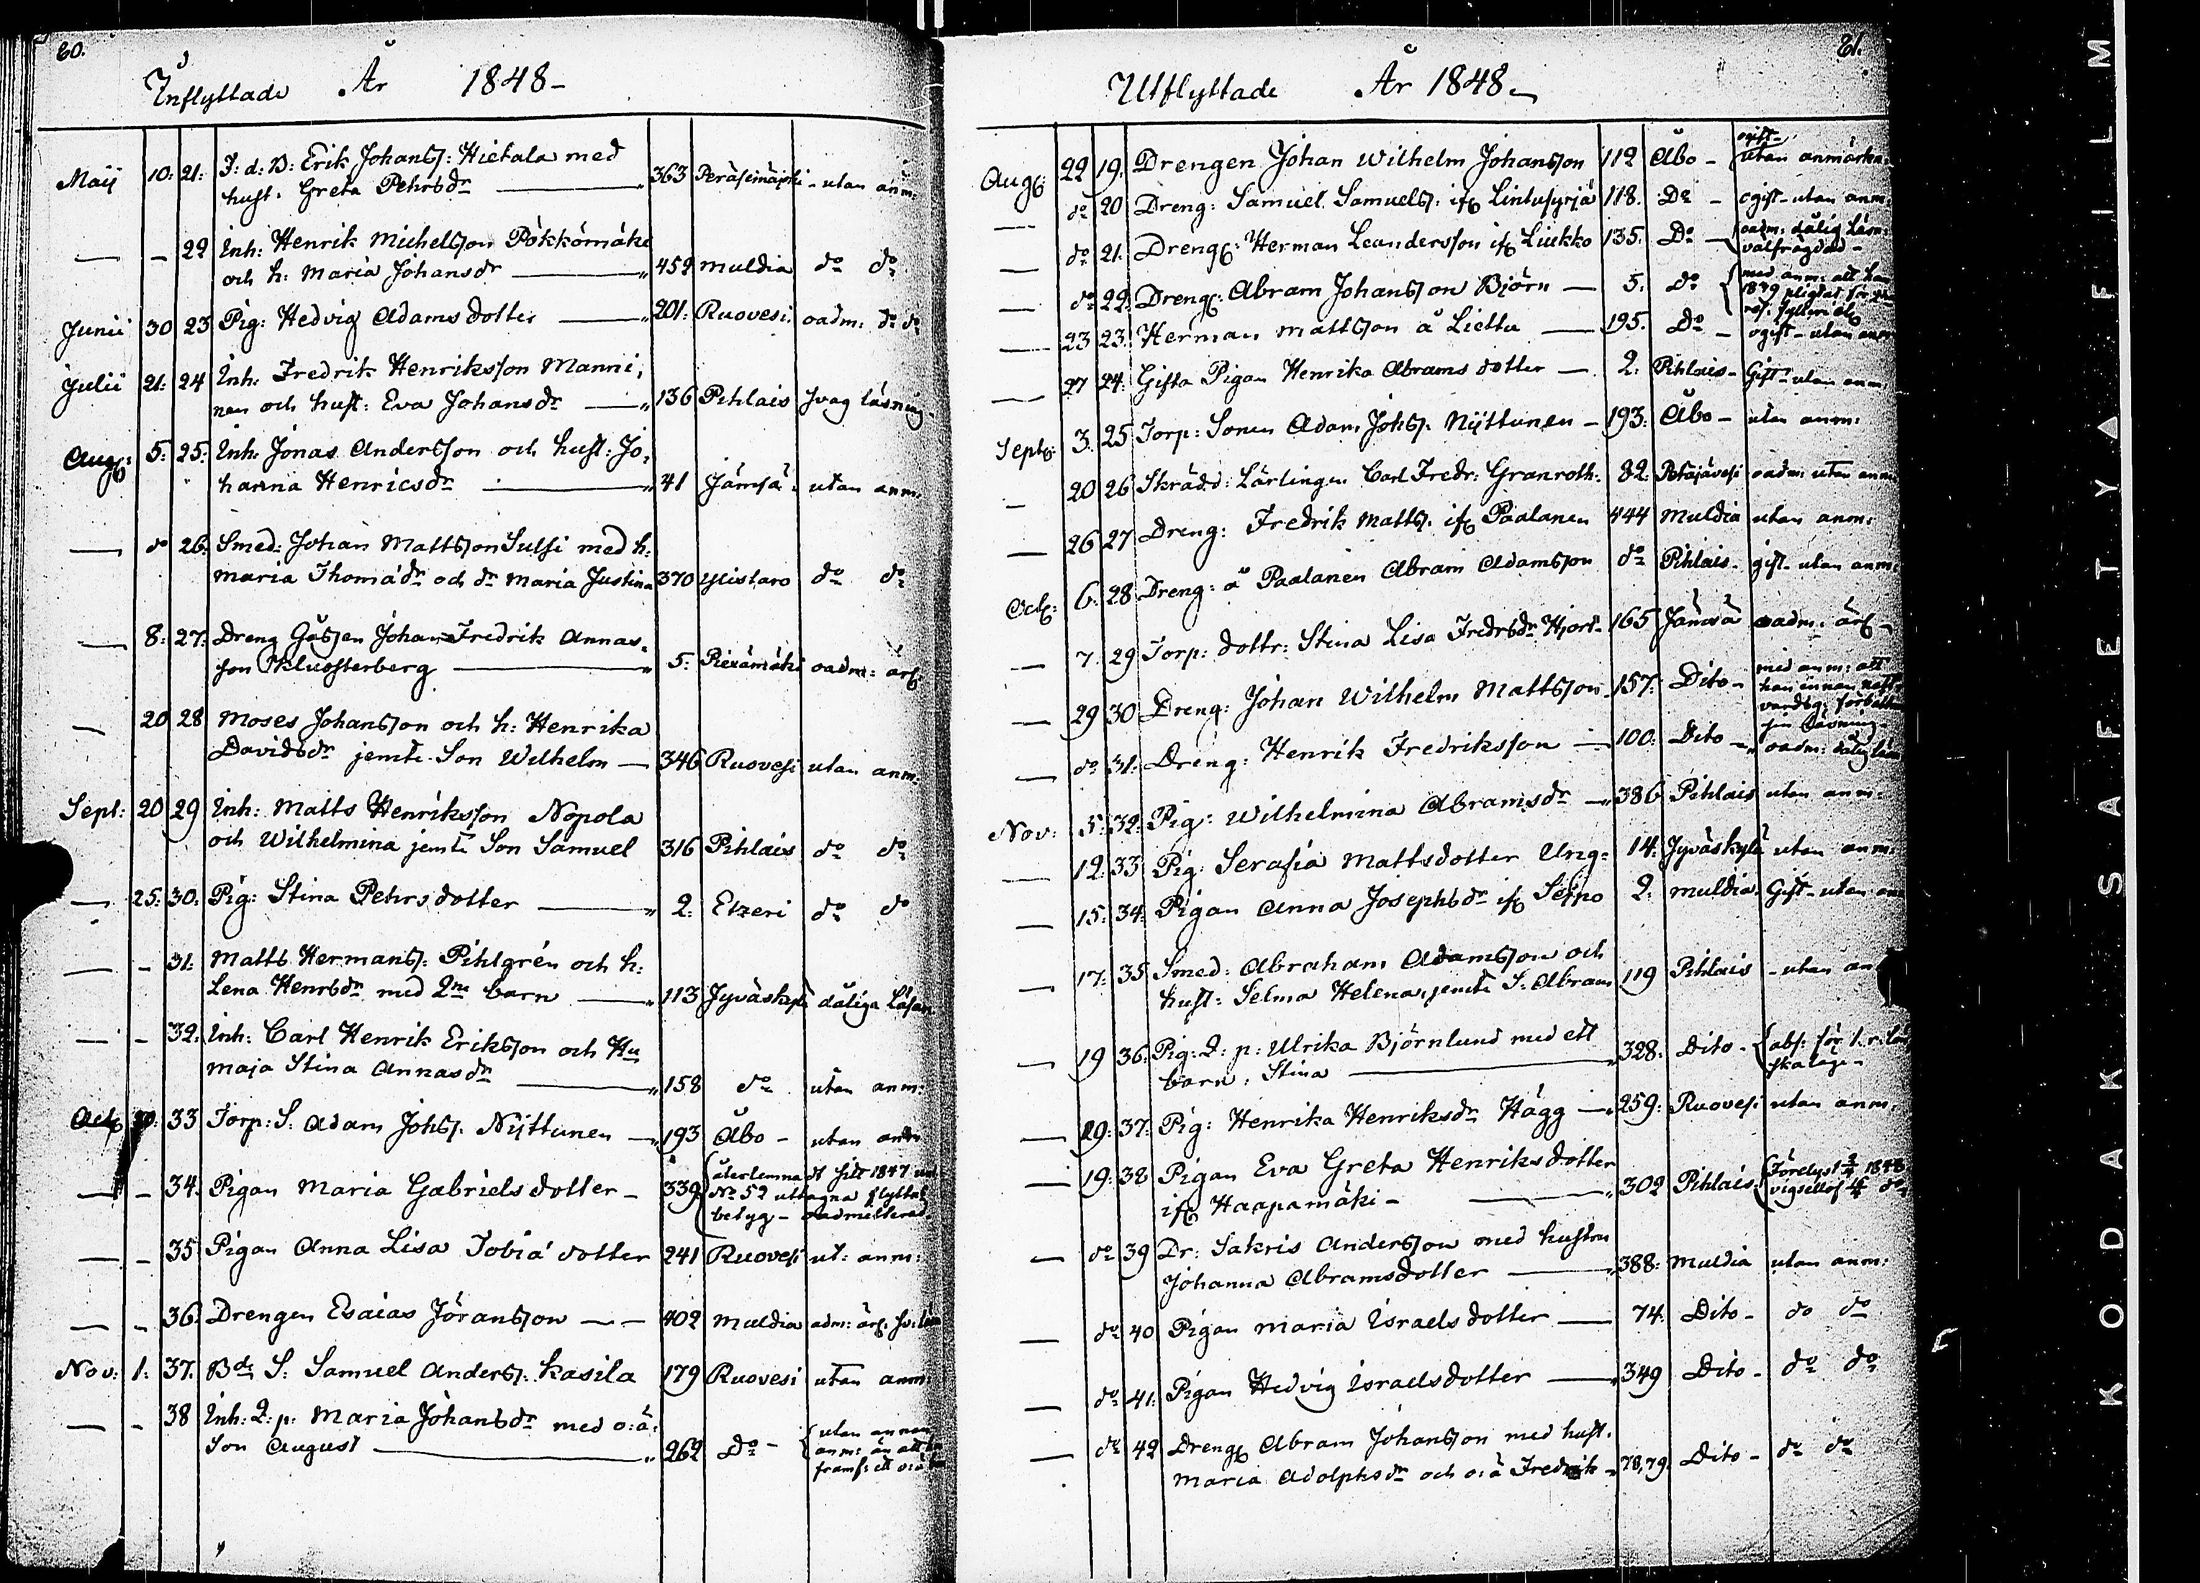 60.
Inflyttade År 1848-
Maij 10: 21: J: d: D: Erik Johanss: Hietala med
hust. Greta Pehrsdr 363 Peräseinäjoki - utan anm:
22 Inh: Henrik Michelsson Pökkömäki
och h: Maria Johansdr 459 Muldia do do
Junii 30 23 Pig: Hedvig Adamsdotter 201: Ruovesi: oadm: do do
Julii 21: 24 Inh: Fredrik Henriksson Manni,
nen och hust: Eva Johansdr 136 Pihlais svag läsning.
Aug: 5: 25: Inh: Jonas Andersson och hust: Jo,
hanna Henricsdr 41 Jämsä. utan anm:
do 26. Smed: Johan Mattsson Sulsi med h:
Maria Thomädr och dr Maria Justina 370 Ylistaro do do
8: 27: Dreng Gossen Johan Fredrik Annas,
son Kluosterberg 5: oadm: ärf:
20 28 Moses Johansson och h: Henrika
Davidsdr jemte Son Wilhelm 346 Ruovesi utan anm.
Sept: 20 29 Inh: Matts Henriksson Nopola
och Wilhelmina jemte Son Samuel 316 Pihlais do do
25: 30: Pig: Stina Pehrsdotter 2: Etzeri do do
- 31: Matts Hermanss: Pihlgrén och h:
Lena Henrsdr med 2ne barn 113 Jyväskylä dåliga Läsare
- 32: Inh: Carl Henrik Eriksson och Hu
Maja Stina Annasdr 158 do utan anm:
Oct 33 Torp: S: Adam Johss. Nyttunen 193 Åbo - utan anm
- 34. Pigan Maria Gabrielsdotter - 339 återlemnadt sitt 1847
No 52 uttagna flyttnings
betyg - oadmitterad.
- 35 Pigan Anna Lisa Tobiä dotter 241 Ruovesi ut: anm:
- 36 Drengen Esaias Jöransson 402 Muldia adm: ärf: sv: läsn
Nov: 1: 37. Bde S: Samuel Anderss. Kasila 179 Ruovesi utan anm:
- 38 Inh: Q: p: Maria Johansdr med o: ä:
Son August 262 do - utan annan
anm: än att hon
framf: ett o: ä: barn
61.
Utflyttade År 1848
Aug: 22 19. Drengen Johan Wilhelm Johansson 112 Åbo - ogift-
utan anmärkn.
do 20 Dreng: Samuel Samuelss: ifr Lintusyrjä 118. Do - ogift - utan anm:
do 21. Dreng: Herman Leandersson ifr Liukko 135. Do - oadm: dålig Läsn:
välfrägdad -
do 22: Dreng: Abram Johansson Björn - 5. do med anm: att han
1849 pligtat för
fylleri etc
23 23. Herman Mattsson å Liettu 195. Do - ogift - utan anm
27 24: Gifta Pigan Henrika Abramsdotter 2: Pihlais - Gift - utan anm
Sept: 3. 25 Torp: Sonen Adam Johss. Nyttunen - 193: Åbo - utan anm:
20 26 Skrädd: Lärlingen Carl Fredr: Granroth: 82: Petäjävesi oadm: utan anm
26 27 Dreng: Fredrik Matts: ifr Paalanen 444 Muldia utan anm:
Oct: 6: 28 Dreng: å Paalanen Abram Adamsson do Pihlais. gift - utan anm:
7. 29 Torp: dottr: Stina Lisa Fredrsdr Hjort 165 Jämsä oadm: ärf
29 30 Dreng: Johan Wilhelm Mattsson 157. Dito - med anm: att
han innan natt
vardsg: förbättra
sin Läsning -
do 31: Dreng: Henrik Fredriksson 100: Dito oadm: dålig läsn
Nov: 5: 32: Pig: Wilhelmina Abramsdr 386 Pihlais utan anm:
12: 33 Pig: Serafia Mattsdotter Ung= 14: Jyväskylä utan anm:
15: 34: Pigan Anna Josephsdr ifr Seppo 2: Muldia. Gift - utan anm
17: 35 Smed: Abraham Adamsson och
hust: Selma Helena, jemte S: Abram 119 Pihlais - utan an
19 36: Pig: Q: p: Ulrika Björnlund med ett
barn: Stina 328: Dito - abs: för 1. r:
skaläge -
29: 37: Pig: Henrika Henriksdr Hägg 259: Ruovesi utan anm:
19: 38 Pigan Eva Greta Henriksdotter
ifr Haapamäki - 302 Pihlais: Förelyst 1848
vigsellös do
do 39 Dr: Sakris Andersson med hustru
Johanna Abramsdotter 388: Muldia utan anm:
do 40 Pigan Maria Israelsdotter 74: Dito - do do
do 41: Pigan Hedvig Israelsdotter 349 Dito - do do
do 42 Dreng Abram Johansson med hust.
Maria Adolphsdr och o: ä Fredrik 78,79. Dito - do do
KODAK SAFETY FILM